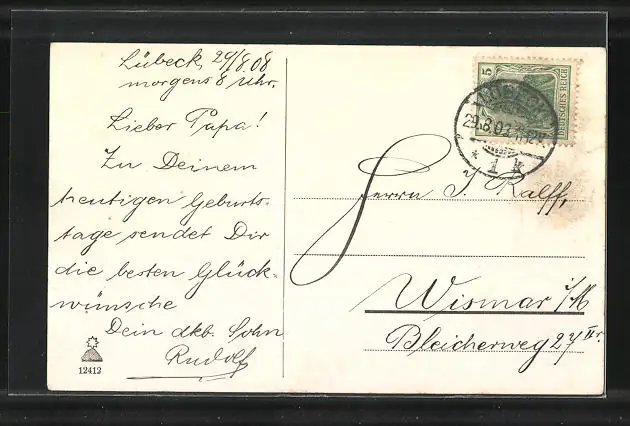 Lübeck, 29/8.08
morgens 8 Uhr.
Lieber Papa!
Zu Deinem
heutigen Geburts-
tage sendet Dir
die besten Glück-
wünsche
Dein dkb. Sohn
Rudolf
12412
5
DEUTSCHES REICH
29.8.0
* 1 k
Herrn J. Kalff,
Wismar i/M
Bleicherweg 27 II r.